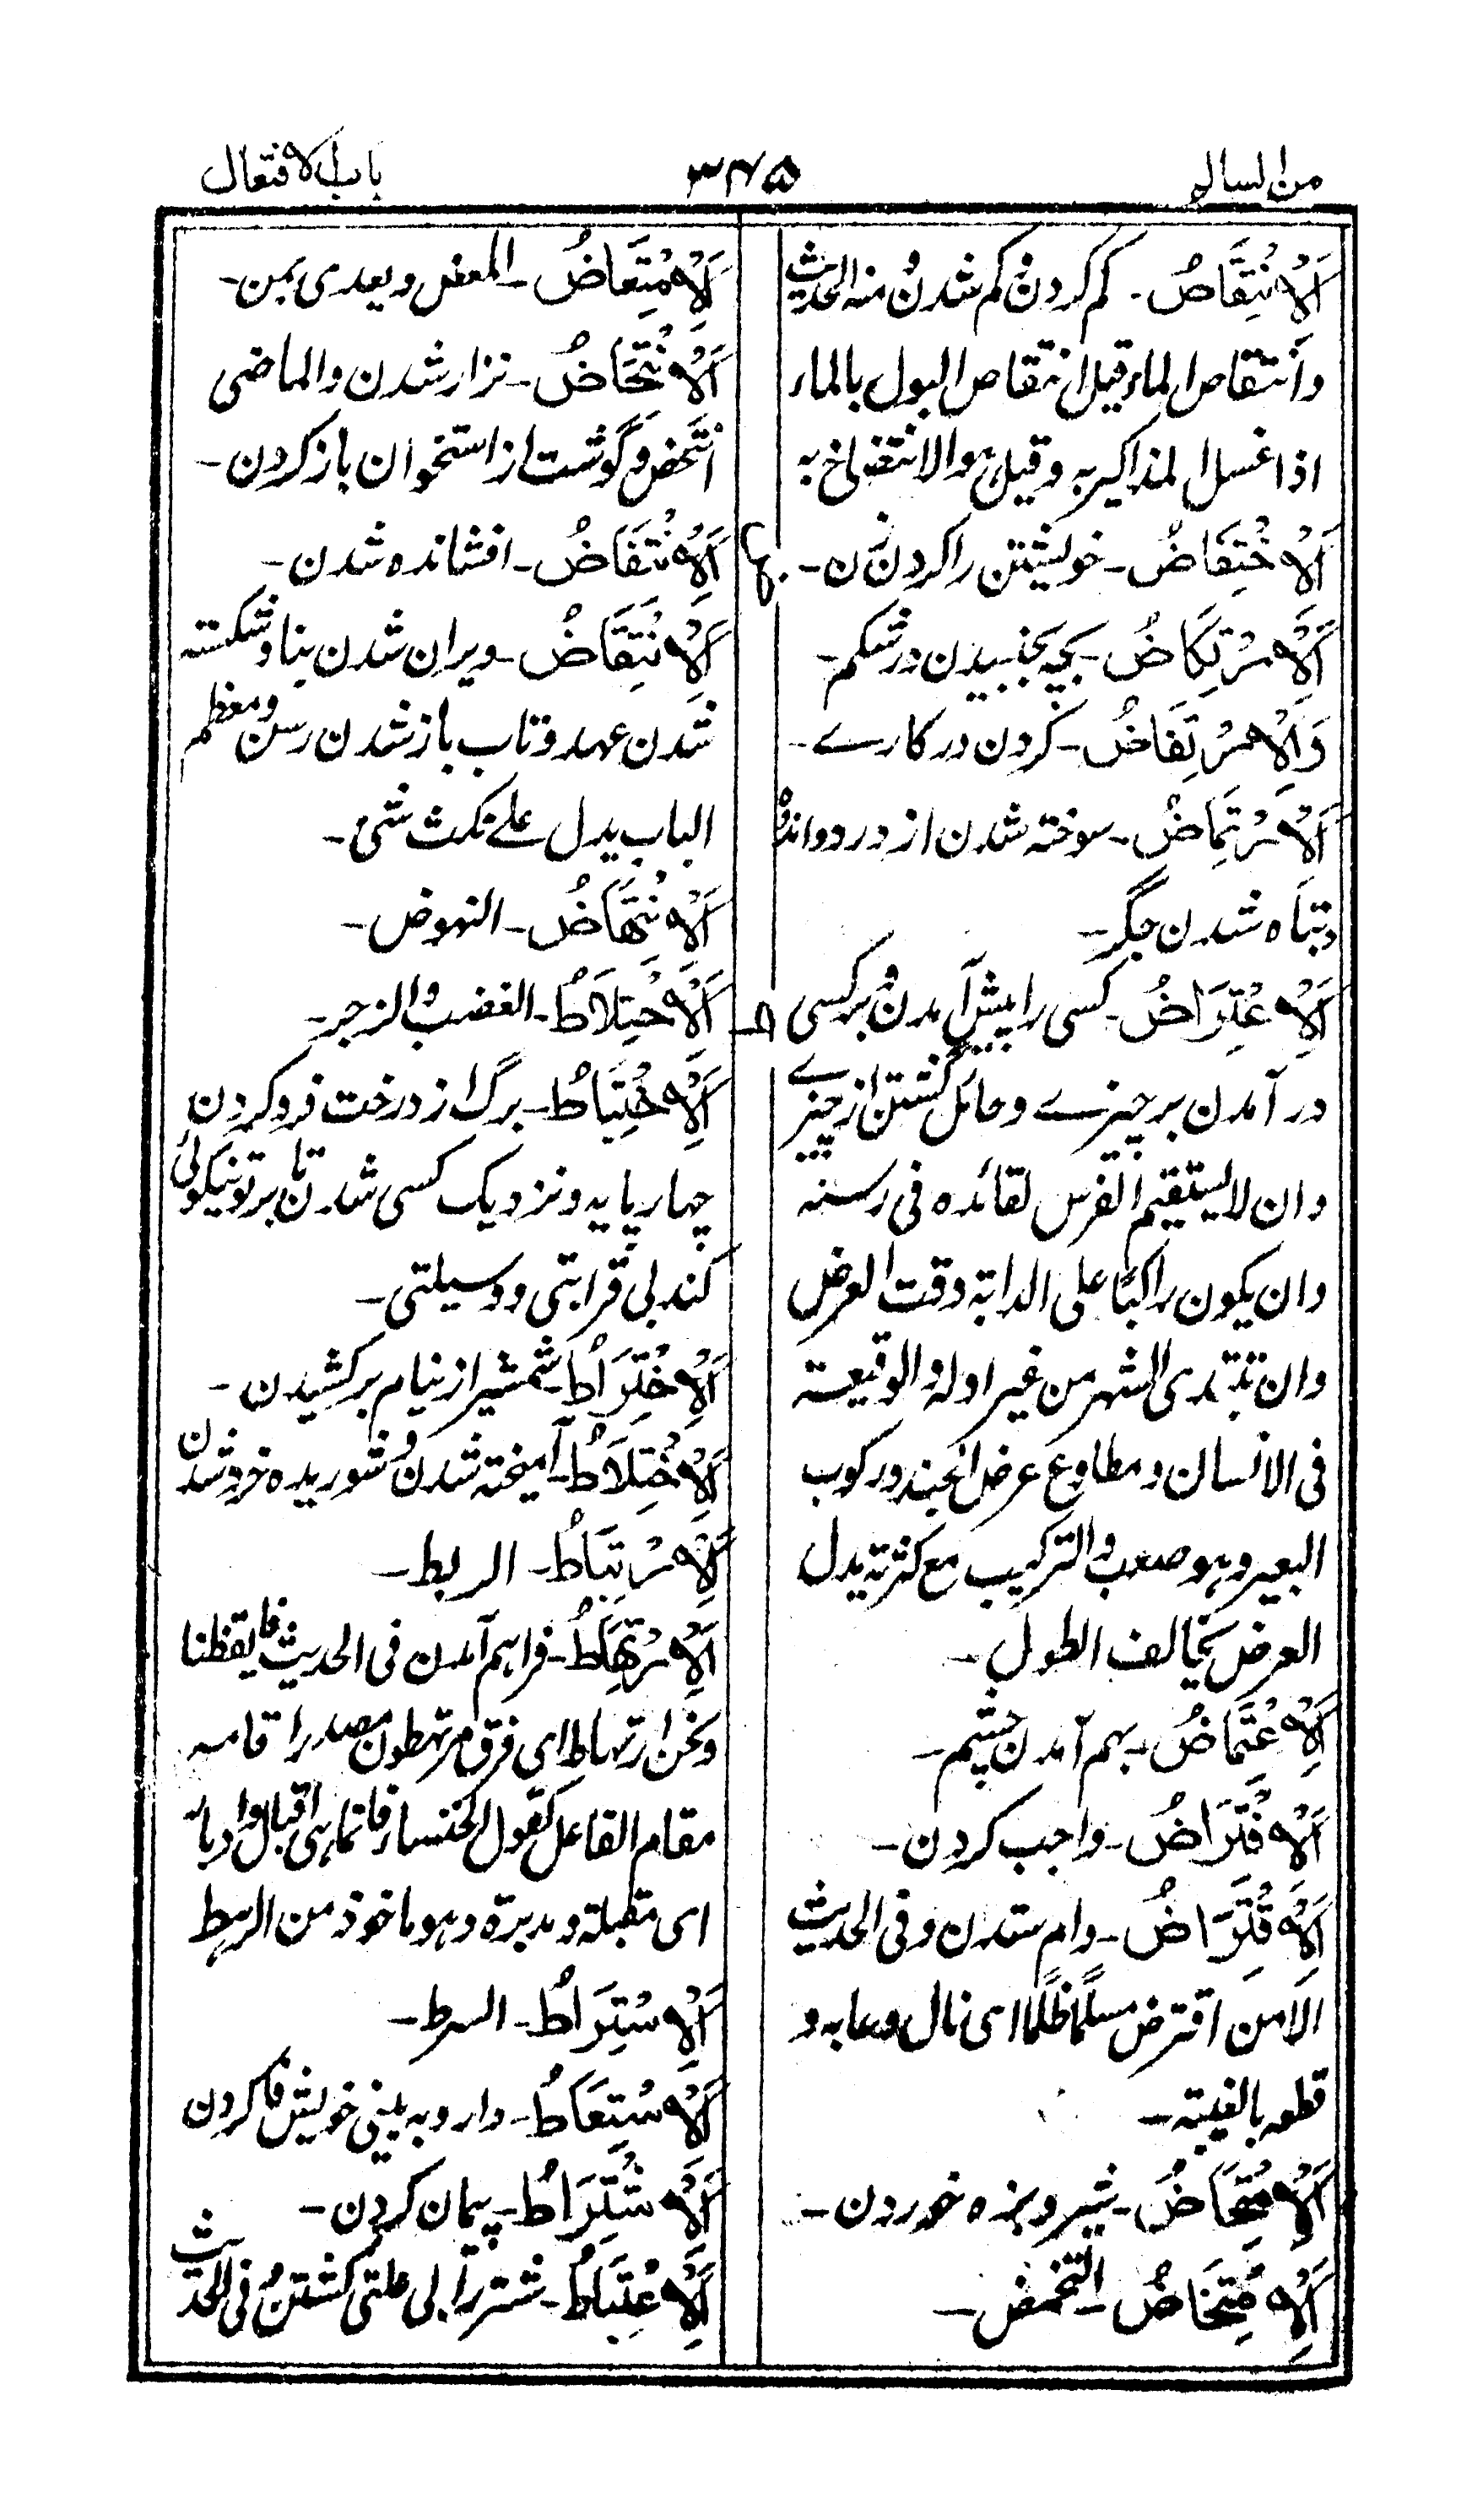 من السالم
٣٧٥
باب الافتعال
اَلْاِنْتِقَاصُ۔ کم کردن و کم شدن و منه الحدیث
وانتقاص الماء قیل انتقاص البول بالماء
اذا غسل المذاکیر به وقیل هو الانتضاخ به
اَلْاِخْتِفَاضُ۔ خویشتن را کردن زن۔
اَلْاِرْتِکَاضُ۔ بچه بجنبیدن در شکم۔
وَالْاِرْتِفَاضُ۔ کردن در کارے۔
اَلْاِرْتِمَاضُ۔ سوخته شدن از درد و اندوه
و تباه شدن جگر۔
اَلْاِعْتِرَاضُ۔ کسی را پیش آمدن و بر کسی
در آمدن بر چیزے و حائل گشتن از چیزے
وان لا یستقیم الفرس لقائده فی رسنه
وان یکون راکبًا علی الدابة وقت العرض
وان تبتدی الشهر من غیر اوله والوقیعة
فی الانسان و مطاوع عرض الجند ورکوب
البعیر وهو صعب والترکیب مع کثرته یدل
العرض یخالف الطول۔
اَلْاِغْتِمَاضُ۔ بهم آمدن چشم۔
اَلْاِفْتِرَاضُ۔ واجب کردن۔
اَلْاِقْتِرَاضُ۔ وام ستدن و فی الحدیث
الا من اقترض مسلمًا ظلمًا ای نال وعابه و
قطعه بالغیبة۔
اَلْاِمْتِحَاضُ۔ شیر و بزه خوردن۔
اَلْاِمْتِخَاضُ۔ التمخض۔
اَلْاِمْتِعَاضُ۔ المعض و یعدی بمن۔
اَلْاِنْتِحَاضُ۔ نزار شدن والماضی
انتحض و گوشت از استخوان باز کردن۔
اَلْاِنْتِفَاضُ۔ افشانده شدن۔
اَلْاِنْتِقَاضُ۔ ویران شدن بنا و شکسته
شدن عهد و تاب باز شدن رسن و معظم
الباب یدل علے نکث شئ۔
اَلْاِنْتِهَاضُ۔ النهوض۔
ط اَلْاِحْتِلَاطُ۔ الغضب والزجر۔
اَلْاِخْتِبَاطُ۔ برگ از درخت فرو کردن
چهارپایه و نزدیک کسی شدن تا بر تو نیکوئی
کند بی قرابتی و وسیلتی۔
اَلْاِخْتِرَاطُ۔ شمشیر از نیام برکشیدن۔
اَلْاِخْتِلَاطُ۔ آمیخته شدن و شوریده خرد شدن
اَلْاِرْتِبَاطُ۔ الربط۔
اَلْاِرْتِهَاطُ۔ فراهم آمدن فی الحدیث فایقظنا
ونحن ارتهاط ای فرق مرتهطون مصدر اقامه
مقام الفاعل کقول الخنساء فانما هی اقبال وادبار
ای مقبلة ومدبرة وهو ماخوذ من الرهط
اَلْاِسْتِرَاطُ۔ السرط۔
اَلْاِسْتِعَاطُ۔ دارو به بینی خویش فا کردن
اَلْاِشْتِرَاطُ۔ پیمان کردن۔
اَلْاِعْتِبَاطُ۔ شتر را بی علتی کشتن و فی الحدیث